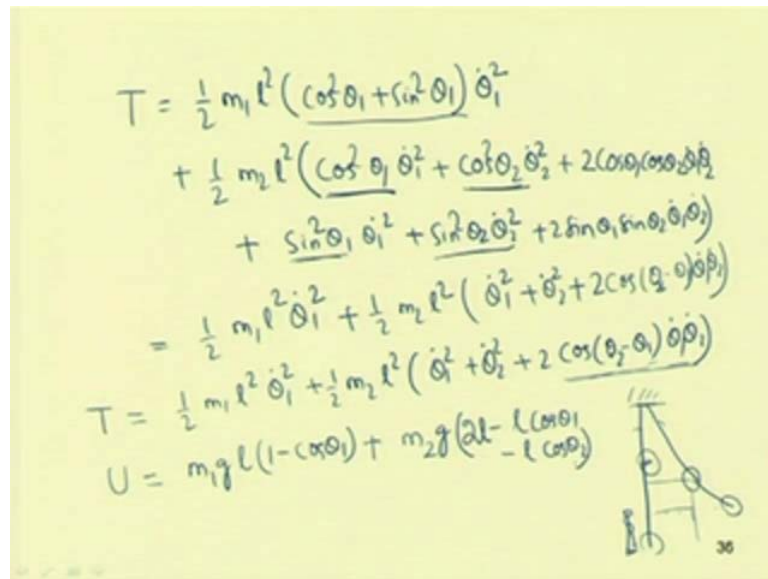 T = 1/2 m₁ l² (cos²θ₁ + sin²θ₁) θ̇₁²
+ 1/2 m₂ l² (cos²θ₁ θ̇₁² + cos²θ₂ θ̇₂² + 2cosθ₁cosθ₂ θ̇₁θ̇₂
+ sin²θ₁ θ̇₁² + sin²θ₂ θ̇₂² + 2sinθ₁sinθ₂ θ̇₁θ̇₂)
= 1/2 m₁ l² θ̇₁² + 1/2 m₂ l² (θ̇₁² + θ̇₂² + 2cos(θ₂-θ₁)θ̇θ̇₁)
T = 1/2 m₁ l² θ̇₁² + 1/2 m₂ l² (θ̇₁² + θ̇₂² + 2 cos(θ₂-θ₁) θ̇θ̇₁)
U = m₁gl(1-cosθ₁) + m₂g(2l - l cosθ₁
- l cosθ₂)
36